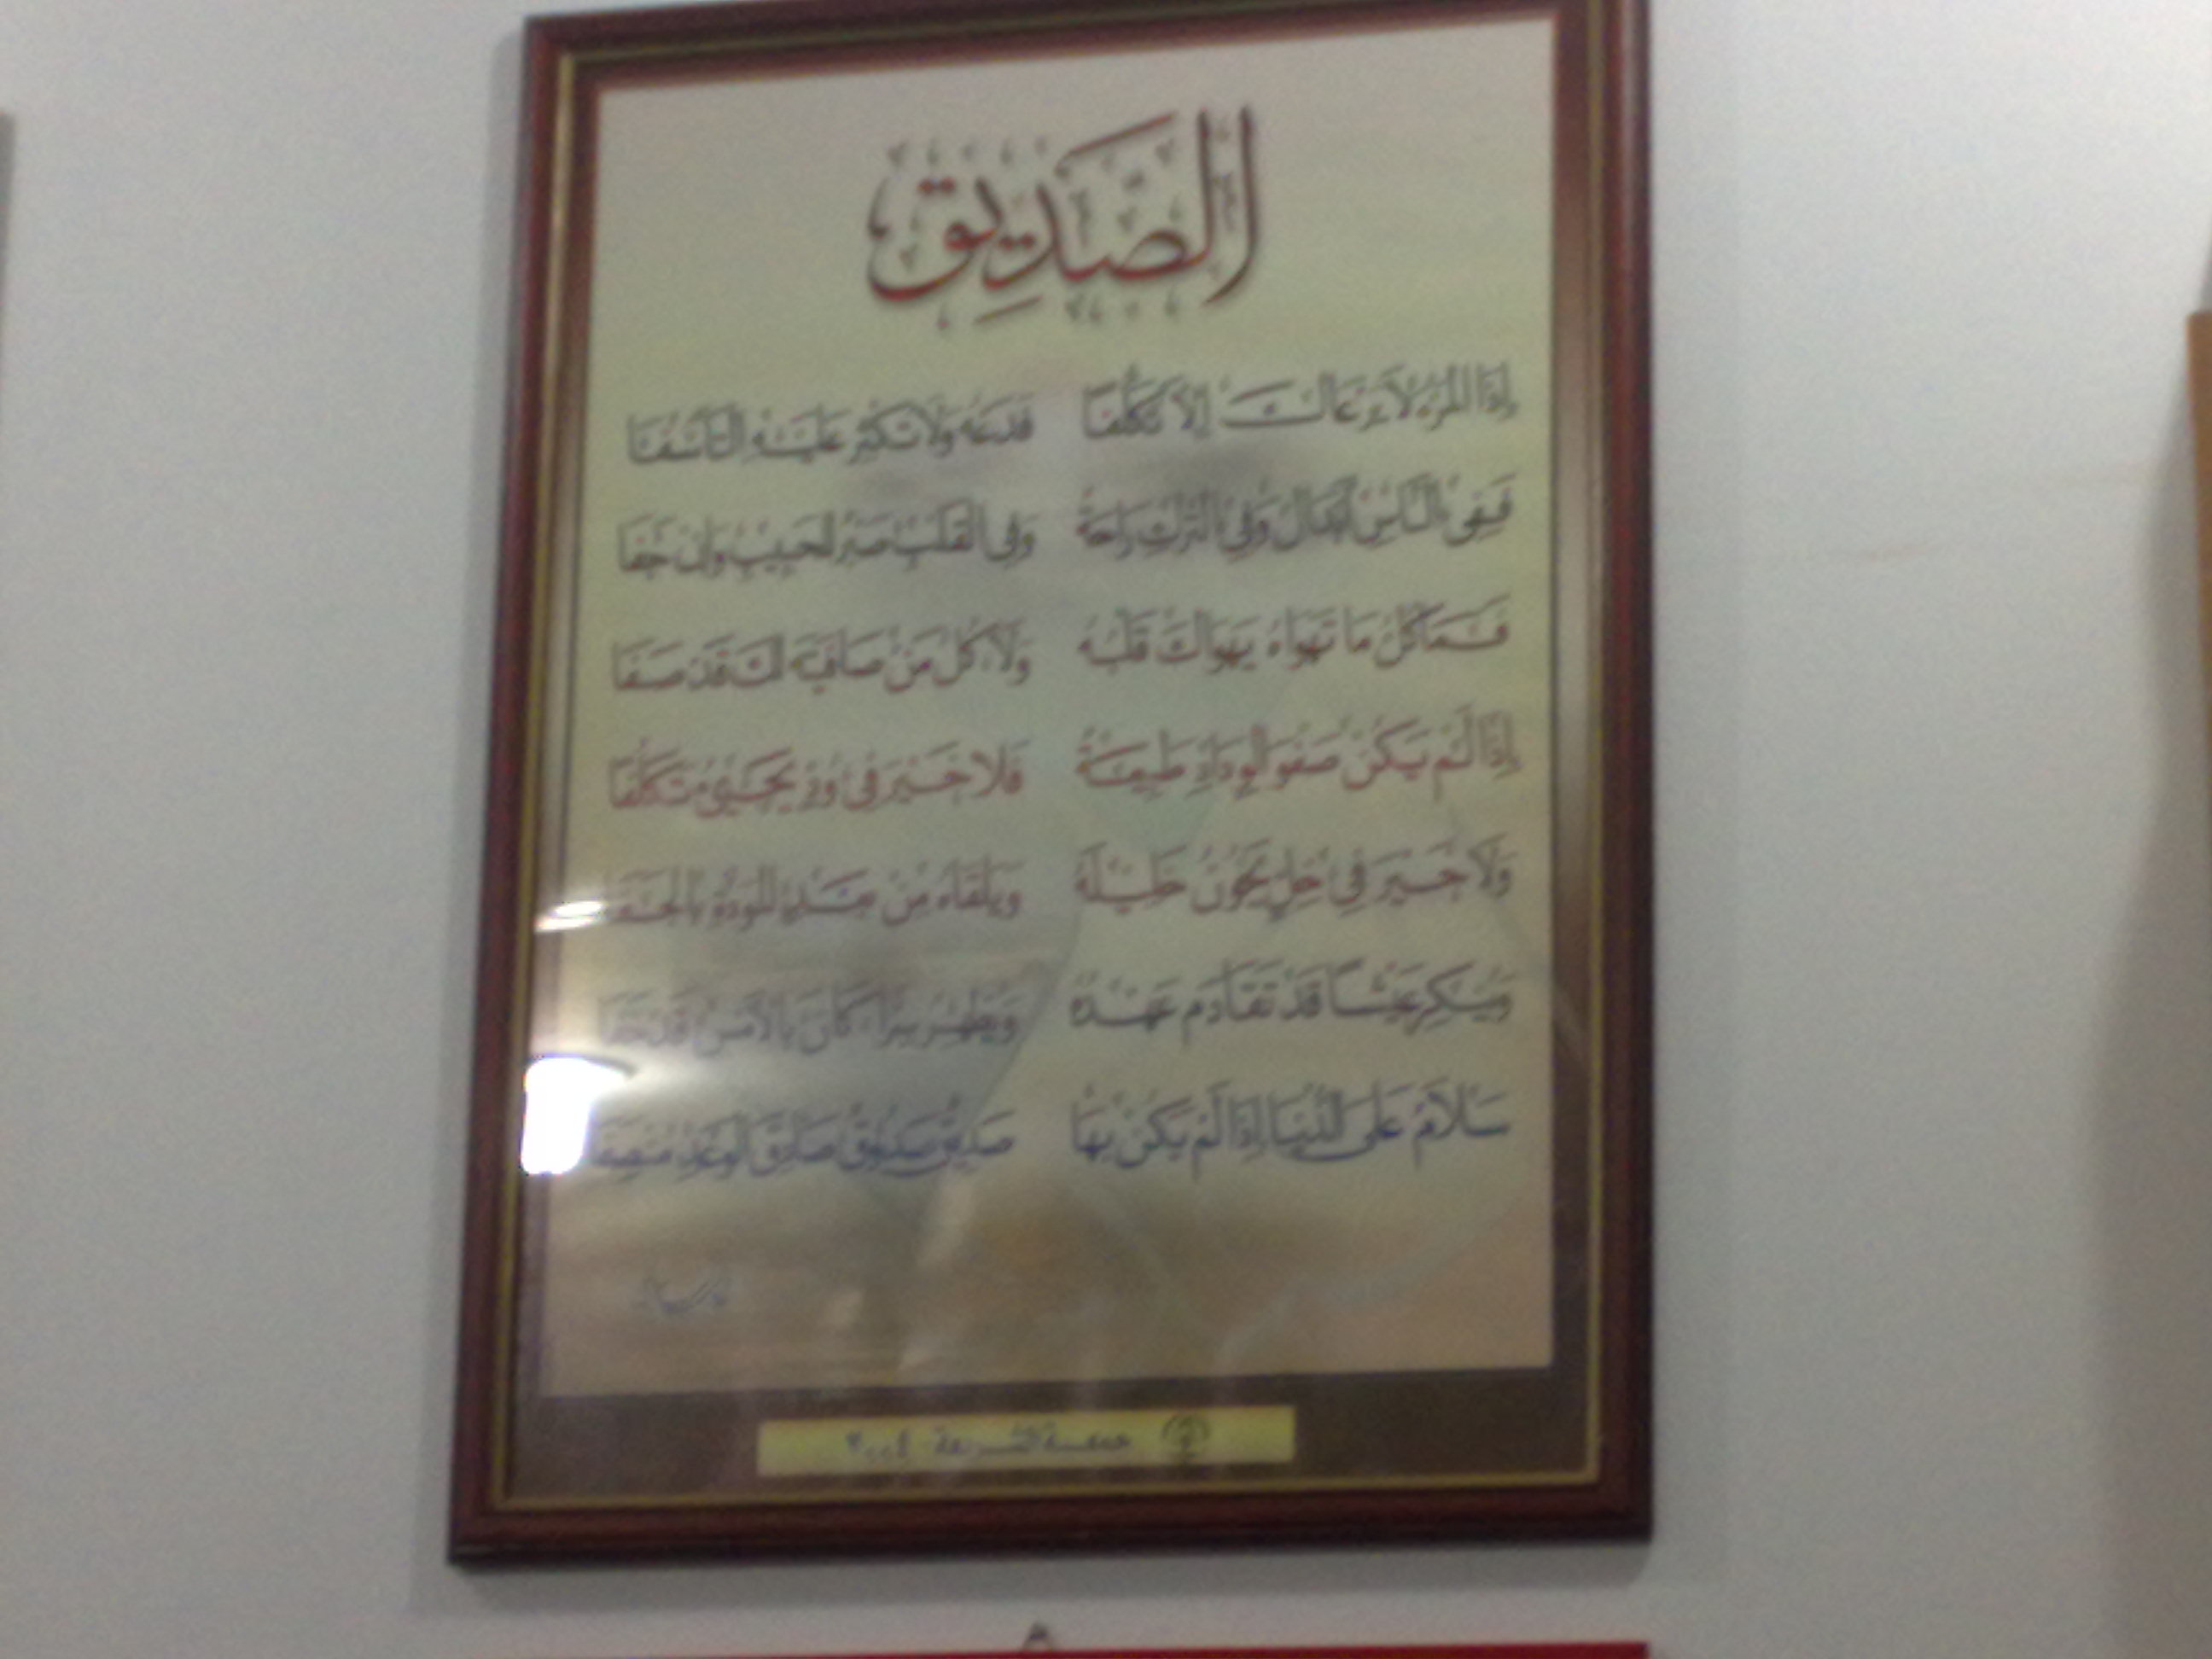 الصَّدِيق
إِذَا المَرْءُ لاَ يَرْعَاكَ إِلاَّ تَكَلُّفًا فَدَعْهُ وَلاَ تُكْثِرْ عَلَيْهِ التَّأَسُّفَا
فَفِي النَّاسِ أَبْدَالٌ وَفِي التَّرْكِ رَاحَةٌ وَفِي القَلْبِ صَبْرٌ لِلحَبِيبِ وَإِنْ جَفَا
فَمَا كُلُّ مَا تَهْوَاهُ يَهْوَاكَ قَلْبُهُ وَلاَ كُلُّ مَنْ صَافَيْتَهُ لَكَ قَدْ صَفَا
إِذَا لَمْ يَكُنْ صَفْوُ الوِدَادِ طَبِيعَةً فَلاَ خَيْرَ فِي وُدٍّ يَجِيءُ تَكَلُّفَا
وَلاَ خَيْرَ فِي خِلٍّ يَخُونُ خَلِيلَهُ وَيَلْقَاهُ مِنْ بَعْدِ المَوَدَّةِ بِالجَفَا
وَيُنْكِرُ عَيْشًا قَدْ تَقَادَمَ عَهْدُهُ وَيُظْهِرُ سِرًّا كَانَ بِالأَمْسِ قَدْ خَفَا
سَلاَمٌ عَلَى الدُّنْيَا إِذَا لَمْ يَكُنْ بِهَا صَدِيقٌ صَدُوقٌ صَادِقُ الوَعْدِ مُنْصِفَا
جمعية الشريعة ٢٠٠٤